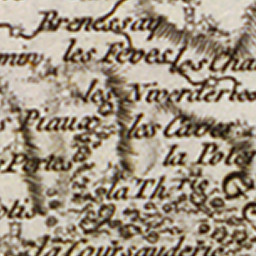 Brenessay
les Feves
les Cha
min
les Nwerderies
s Piaux
les Caves
Portes
la Poter
la Th.rie
otis
la Coursauderie